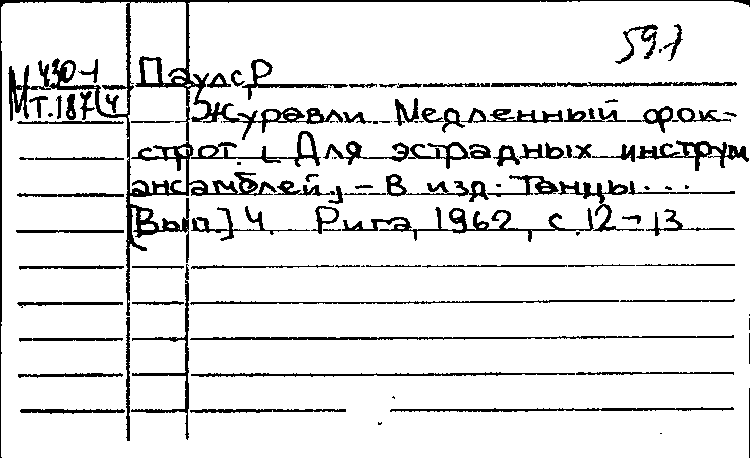 59.1
М 430-1 Паулс, Р
Т.187/4 Журавли. Медленный фок-
строт. [Для эстрадных инструм
ансамблей] – В изд: Танцы...
[Вып.] 4. Рига, 1962, с. 12-13